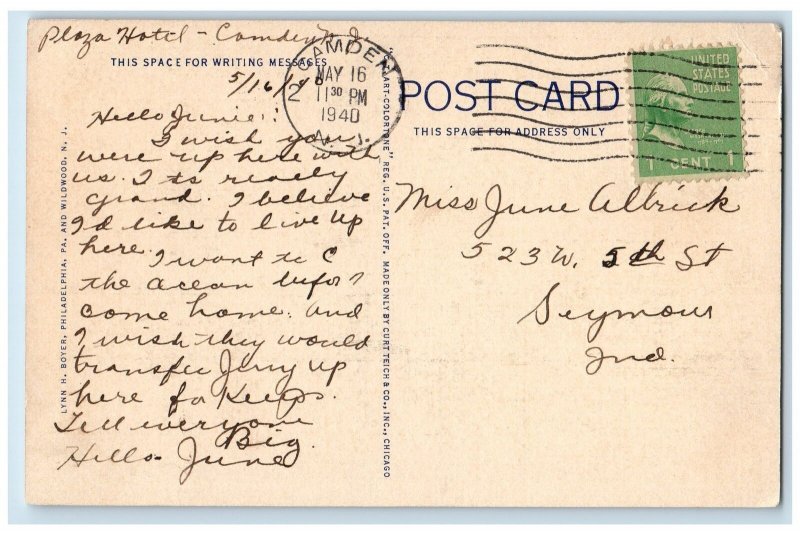 Plaza Hotel - Camden N.J.
THIS SPACE FOR WRITING MESSAGES
5/16/40
Hello Junie:
I wish you
were up here with
us. Its really
grand. I believe
I'd like to live up
here.
I want to C
the ocean befor I
come home. and
I wish they would
transfer Jerry up
here for Keeps.
Tell everyone
Hello Big
June
LYNN H. BOYER, PHILADELPHIA, PA. AND WILDWOOD, N. J.
"ART-COLORTONE" REG. U.S. PAT. OFF. MADE ONLY BY CURT TEICH & CO., INC., CHICAGO
CAMDEN
MAY 16
11 30 PM
1940
N. J.
2
POST CARD
THIS SPACE FOR ADDRESS ONLY
UNITED
STATES
POSTAGE
1 CENT 1
Miss June Albrick
523 W. 5th St
Seymour
Ind.